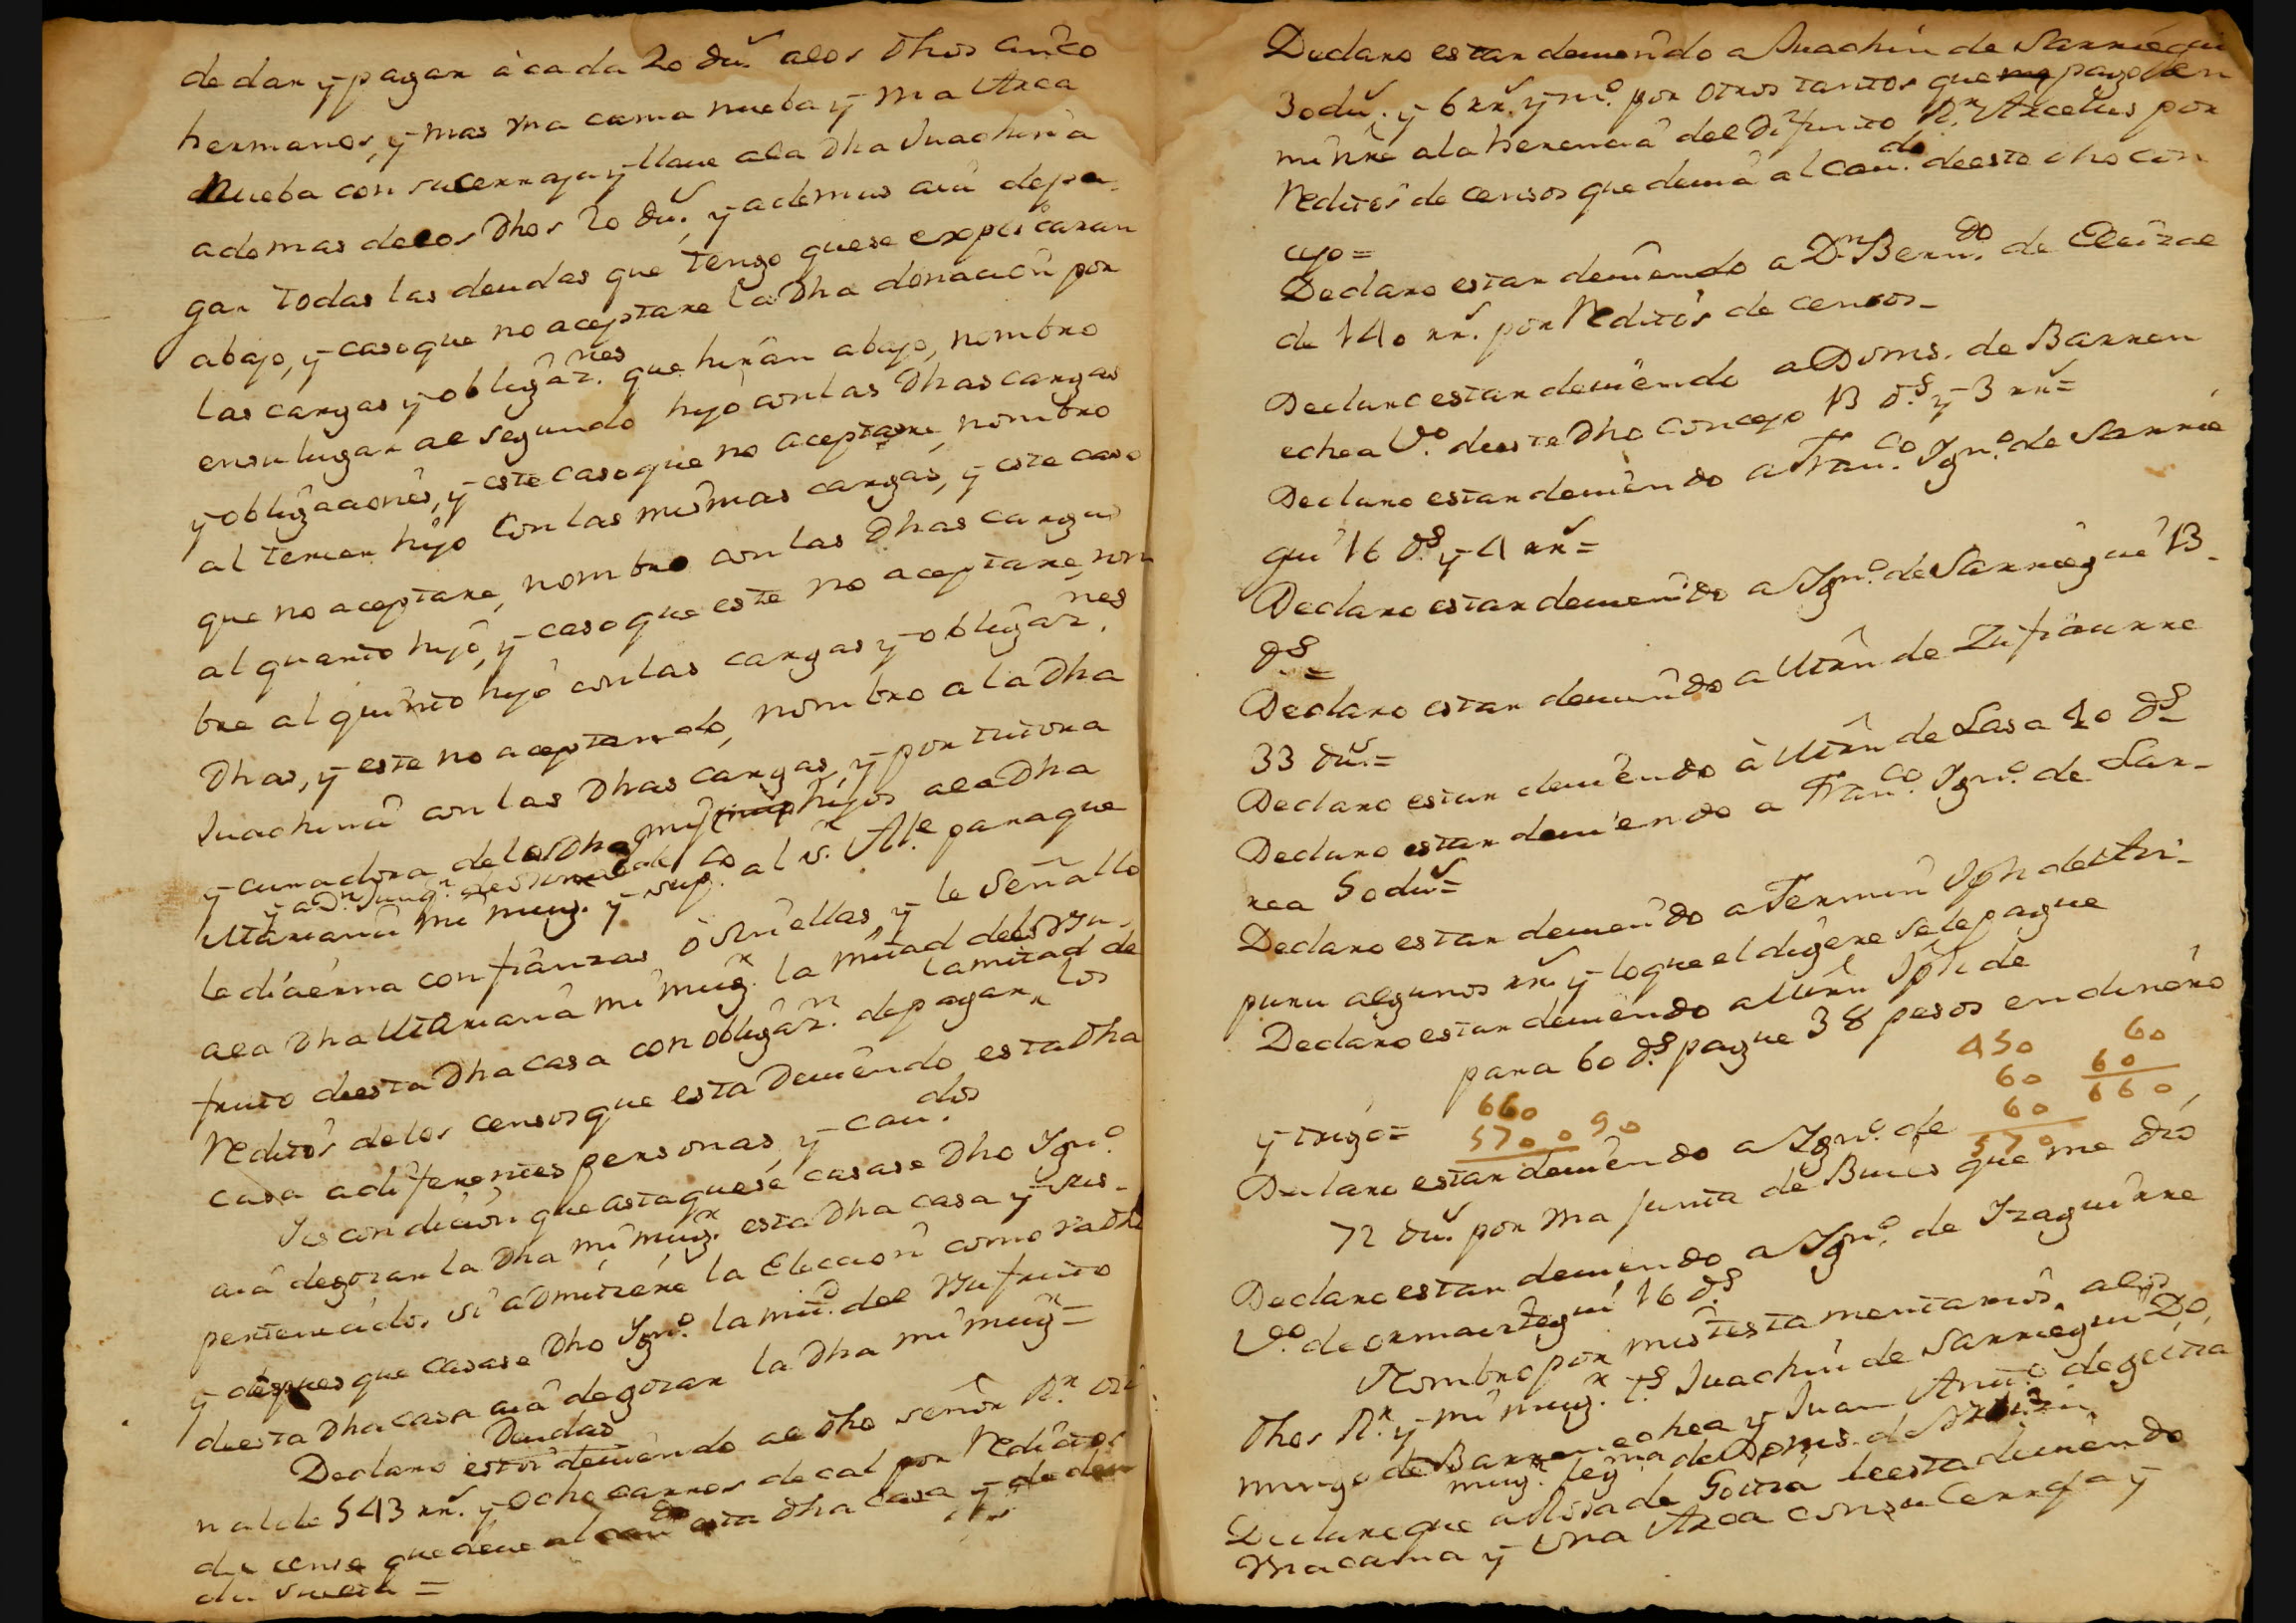 de dar y pagar à cada 20 du.s alos dhos cinco
hermanos, y mas vna cama nueba y vna Arca
Nueba con su cerraja y llaue ala dha Juachina
ademas delos dhos 20 du.s, y ademas aiâ de pa-
gar todas las deudas que tengo que se explicaran
abajo, y casoque no aceptare la dha donación por
las cargas y obligaz.nes que hirân abajo, nombro
en su lugar al segundo hijo con las dhas cargas
y obligaciones, y este casoque no aceptare, nombro
al tercer hijo con las mismas cargas, y este caso
que no aceptare, nombro con las dhas cargas
al quarto hijo, y casoque este no aceptare, nom
bre al quinto hijo con las cargas y obligaz.nes
dhas, y este no aceptando, nombro a la dha
Juachina con las dhas cargas, y por tutora
y curadora de los dhos mis hijos ala dha
y a Dn
Mariana mi mug.r y sup.co al s.r Al.e paraque
le dicierna con fianzas ò sin ellas, y le señallo
ala dha Mariana mi mug.r la mitad del vsu-
fruto de esta dha casa con obligaz.n de pagar la mitad de los
Reditos de los censos que esta deuiendo esta dha
casa a diferentes personas, y cau.dos
Ies condicion que asta que se casase dho Ign.o
aiâ de gozar la dha mi mug.r esta dha casa y sus-
pertenecidos si admitiere la Eleccion como va dho
y despues que casase dho Ign.o la mit.d del vsufruto
de esta dha casa aiâ de gozar la dha mi mug.r =
Deudas
Declaro estoi deuiendo al dho señor R.r
nal de 543 rr.s y ocho carros de cal por Reditos
de censo que deue al esta dha casa y de
de =
Declaro estar deuiendo a Juachin de Sarriegui
30 du.s y 6 rr.s y m.o por otros tantos que pago en
mi nre ala herencia del difunto R.r Arcelus por
Reditos de censos que deuia al cau.do de este dho con
cejo =
Declaro estar deuiendo a Dn Bern.do de Eleizal
de 140 rr.s por Reditos de censos-
Declaro estar deuiendo a Doms. de Barren
echea V.o de este dho concejo 13 d.s y 3 rr.s =
Declaro estar deuiendo a Fran.co Ign.o de Sarrie
gui 16 d.s y 4 rr.s =
Declaro estar deuiendo a Ign.o de Sarriegui 13-
d.s =
Declaro estar deuiendo a Mrn de Zufiaurre
33 du.s =
Declaro estar deuiendo à Mrn de Lasa 40 d.s
Declaro estar deuiendo a Fran.co Ign.o de Lar-
rea 50 du.s =
Declaro estar deuiendo a Fermin Jph de Ari-
puru algunos rr.s y lo que el digere se le pague
Declaro estar deuiendo a Mrn Jph de
para 60 d.s pague 38 pesos en dinero
y trigo =
660
570 0 90
450
60
60
570
60
60
660
Declaro estar deuiendo a Ign.o de
72 du.s por vna junta de Buies que me dio
Declaro estar deuiendo a Ign.o de Izaguirre
V.o de ormaiztegui 16 d.s
Nombro por mis testamentarios alos
dhos R.r y mi mug.r t.s Juachin de Sarriegui Do,
mingo de Barrenechea y Juan Ant.o de goitia
mug.r leg.ma de Doms. de
Declaro que a Rosa de Goitia le esta deuiendo
vna cama y vna Arca con su Cerraja y